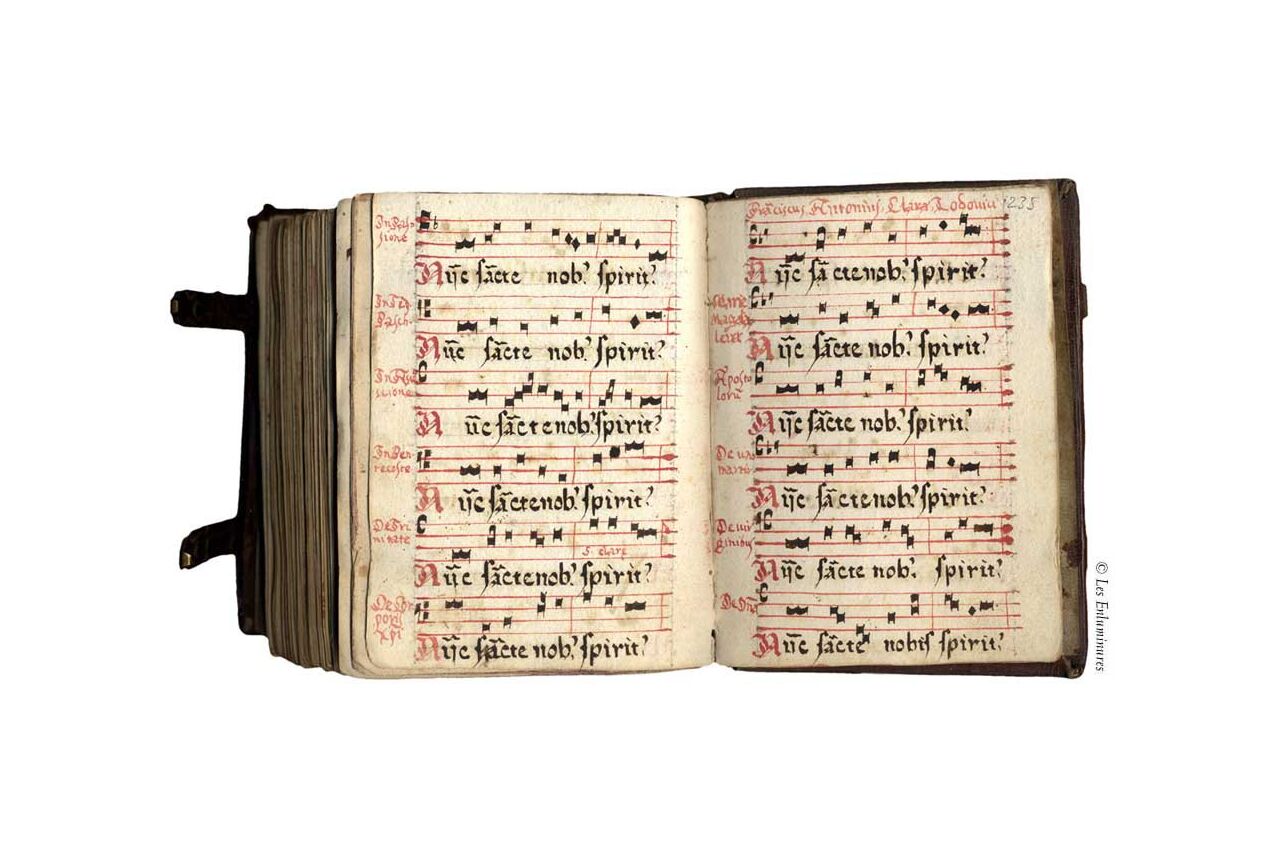 In Passione
Nūc sācte nob' spirit'
In Tēp. Pasch.
Nūc sācte nob' spirit'
Nūc sācte nob' spirit'
In Pentecoste
Nūc sācte nob' spirit'
De Trinitate
S. Clare
Nūc sācte nob' spirit'
De Corporis Xpi
Nūc sācte nob' spirit'
Frāciscus Antonius, Clara, Lodovic 235
Nūc sā cte nob' spirit'
Marie Magdalene
Nūc sācte nob' spirit'
Apostolorū
Nūc sācte nob' spirit'
De uno martire
Nūc sā cte nob' spirit'
De virginibus
Nūc sācte nob' spirit'
Nūc sācte nobis spirit'
© Les Enluminures